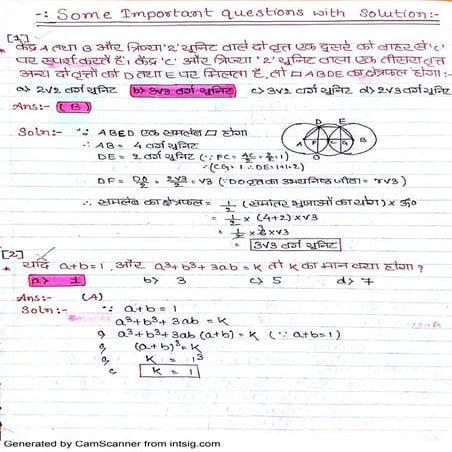 -: Some Important questions with Solution:-
[1]
केंद्र A तथा B और त्रिज्या '2' यूनिट वाले दो वृत्त एक दूसरे को बाहर से 'C'
पर स्पर्श करते हैं। केंद्र 'C' और त्रिज्या '2' यूनिट वाला एक तीसरा वृत्त
अन्य दो वृत्तों को D तथा E पर मिलता है, तो □ABDE का क्षेत्रफल होगा:-
a) 2√2 वर्ग यूनिट b) 3√3 वर्ग यूनिट c) 3√2 वर्ग यूनिट d) 2√3 वर्ग यूनिट
Ans:- (B)
D E
A F C G B
O
Soln:- ∵ ABED एक समलंब □ होगा
∴ AB = 4 वर्ग यूनिट
DE = 2 वर्ग यूनिट (∵ FC = AC/2 = 2/2 = 1)
(CG = 1 ∴ DE = 1+1 = 2)
DF = DO/2 = 2√3/2 = √3 (∵ DO वृत्त का उभयनिष्ठ जीवा = r√3)
∴ समलंब का क्षेत्रफल = 1/2 (समांतर भुजाओं का योग) x ऊँ०
= 1/2 x (4+2) x √3
= 1/2 x 6 x √3
= 3√3 वर्ग यूनिट
[2]
* यदि a+b=1, और a³+b³+3ab = K तो K का मान क्या होगा?
a) 1 b) 3 c) 5 d) 7
Ans:- (A)
Soln:- ∵ a+b = 1
a³+b³+3ab = K
a³+b³+3ab (a+b) = K (∵ a+b=1)
(a+b)³ = K
K = 1³
K = 1
Generated by CamScanner from intsig.com